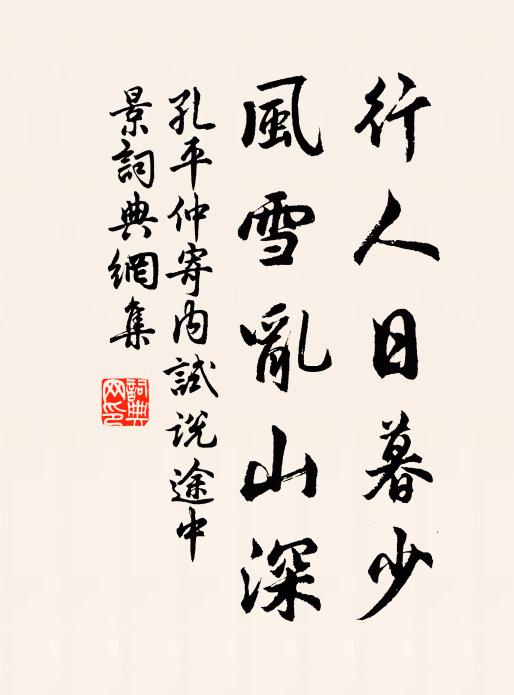 行人日暮少
風雪亂山深
孔平仲寄內試説途中
景詞典網集
詞典網印